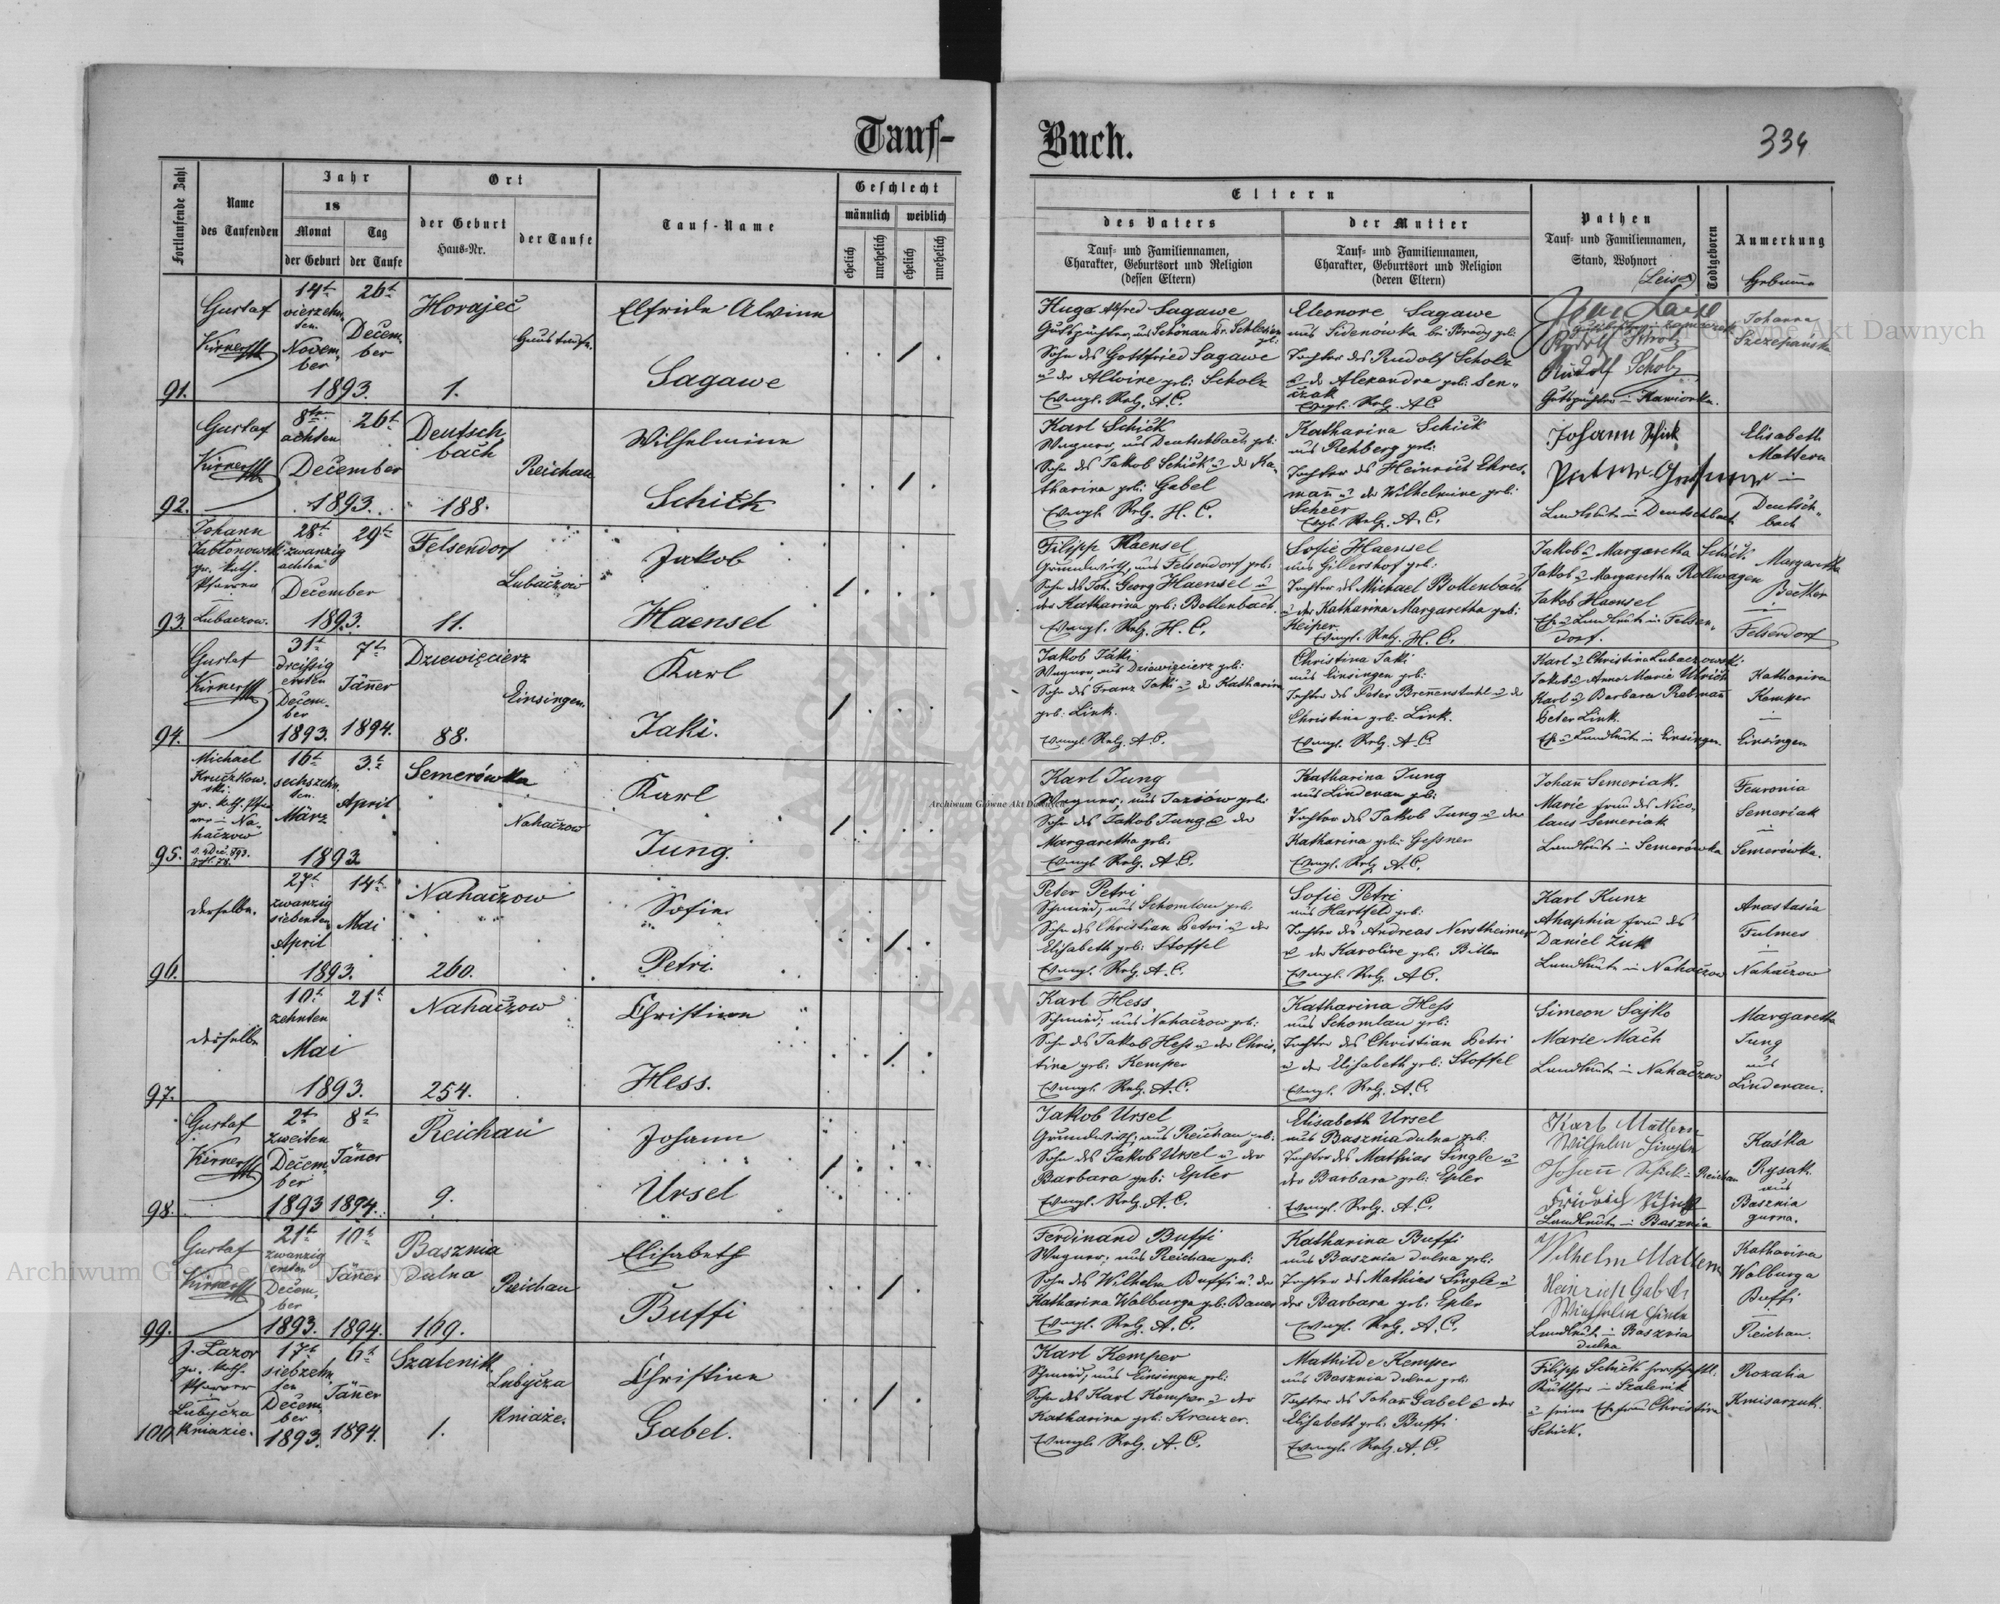 Tauf-
Fortlaufende Zahl
Name
des Taufenden
Jahr
18
Monat
der Geburt
Tag
der Taufe
Ort
der Geburt
Haus-Nr.
der Taufe
Tauf-Name
Geschlecht
männlich
weiblich
ehelich
unehelich
ehelich
unehelich
91.
Gustaf
14t
vierzehn
ten
Novem
ber
1893.
26t
Decem
ber
Horajec
1.
Elfride Alvine
Sagawe
92.
Gustaf
8te
achten
December
1893.
26t
Deutsch
bach
188.
Reichau
Wilhelmine
Schick
93.
Johann
gr. kath.
Pfarrer
Lubaczow.
28t
zwanzig
achten
December
1893.
29t
Felsendorf
11.
Lubaczow
Jakob
Haensel
94.
Gustaf
31t
dreißig
ersten
Decem
ber
1893.
7t
Jäner
1894.
Dziewięcierz
88.
Einsingen
Karl
Jaki.
95.
Michael
Kruczkow
ski
16t
sechszehn
ten
März
1893
3t
April
Semerówka
Nahaczow
Karl
Jung.
96.
derselbe.
27t
zwanzig
siebenten
April
1893.
14t
Mai
Nahaczow
260.
Sofie
Petri.
97.
derselbe
10t
zehnten
Mai
1893.
21t
Nahaczow
254.
Christine
Hess.
98.
Gustaf
2t
zweiten
Decem
ber
1893
8t
Jäner
1894.
Reichau
9.
Johann
Ursel
99.
Gustaf
21t
zwanzig
ersten
Decem
ber
1893.
10t
Jäner
1894.
Basznia
dulna
169.
Reichau
Elisabeth
Buffi
100.
J. Lazor
gr. kath.
Pfarrer
in
Lubycza
Kniazie.
17t
siebzehn
ten
Decem
ber
1893.
6t
Jäner
1894.
Szalenik
1.
Lubycza
Kniazie.
Christine
Gabel.
Buch.
334
Eltern
des Vaters
Tauf- und Familiennamen,
Charakter, Geburtsort und Religion
(dessen Eltern)
der Mutter
Tauf- und Familiennamen,
Charakter, Geburtsort und Religion
(deren Eltern)
Pathen
Tauf- und Familiennamen,
Stand, Wohnort
(Leise)
Todigeboren
Anmerkung
Hebamme
Hugo Alfred Sagawe
Sohn des Gottfried Sagawe
u der Alvine geb: Scholz
Evngl. Relg. A.C.
Eleonore Sagawe
Tochter des Rudolf Scholz
u der Alexandra geb: Sen-
czak
Evgl. Relg. A.C
Rudolf Scholz
Johanna
Szczepańska
Karl Schick
Wagner, aus Deutschbach geb:
Sohn des Jakob Schick u der Ka-
tharina geb: Gabel
Evngl. Relg. H. C.
Katharina Schick
aus Rehberg geb:
Tochter des Heinrich Ehres-
mann u der Wilhelmine geb:
Scheer
Evgl. Relg. A. C.
Johann Schick
Landleute in Deutschbach
Elisabeth
Mattern
Deutsch-
bach
Filipp Haensel
Grundwirth, aus Felsendorf geb:
Sohn des Joh. Georg Haensel u
der Katharina geb: Bollenbach.
Evngl. Relg. H. C.
Sofie Haensel
aus Gillershof geb:
Tochter des Michael Bollenbach
u der Katharina Margaretha geb:
Keiper.
Evngl. Relg. H. C.
Jakob u Margaretha Schick
Jakob u Margaretha Rollwagen
Jakob Haensel
Margaretha
Becker
in
Felsendorf
Jakob Jaki
Wagner aus Dziewięcierz geb:
Sohn des Franz Jaki u der Katharina
geb: Link.
Evngl Relg. A.C.
Christina Jaki
aus Einsingen geb:
Tochter des Peter Brennenstuhl u der
Christine geb: Link.
Evngl. Relg. A.C.
Karl u Christina Lubaczowski
Jakob u Anna Marie Ulrich
Karl u Barbara Rebmann
Peter Link
Katharina
Kemper
in
Einsingen
Karl Jung
Sohn des Jakob Jung u der
Margaretha geb.
Evngl. Relg. A.C.
Katharina Jung
aus Lindenau geb:
Tochter des Jakob Jung u der
Katharina geb: Geßner
Evngl. Relg. A.C.
Johan Semeriak.
Marie frau des Nico-
laus Semeriak
Landleute in Semerówka
Fewronia
Semeriak
in
Semerówka.
Peter Petri
Schmied, aus Schomlau geb:
Sohn des Christian Petri u der
Elisabeth geb: Stoffel
Evngl. Relg. A.C.
Sofie Petri
aus Hartfeld geb:
Tochter des Andreas Nerstheimer
u der Karoline geb: Biller
Evngl. Relg. A.C.
Karl Kunz
Ahaphia frau des
Daniel Zuk
Landleute in Nahaczow
Anastasia
Fulmes
in
Nahaczow
Karl Hess
Schmied; aus Nahaczow geb:
Sohn des Jakob Heß u der Chris-
tine geb: Kemper
Evngl. Relg. A.C.
Katharina Heß
aus Schomlau geb:
Tochter des Christian Petri
u der Elisabeth geb: Stoffel
Evngl. Relg. A.C.
Simeon Sajko
Marie Mach
Landleute in Nahaczow
Margaretha
Jung
aus
Lindenau.
Jakob Ursel
Grundwirth, aus Reichau geb:
Sohn des Jakob Ursel u der
Barbara geb: Epler
Evngl. Relg. A.C.
Elisabeth Ursel
aus Basznia dulna geb:
Tochter des Mathias Single u
der Barbara geb: Epler
Evngl. Relg. A.C.
Karl Mattern
Landleute in Basznia
Kaśka
Rysak
aus
Basznia
gurna.
Ferdinand Buffi
Wagner; aus Reichau geb:
Sohn des Wilhelm Buffi u. der
Katharina Walburga geb: Bauer
Evngl. Relg. A.C.
Katharina Buffi
aus Basznia dulna geb:
Tochter des Mathias Single u
der Barbara geb. Epler
Evngl. Relg. A.C.
Wilhelm Mattern
Heinrich Gabel
Landleute in Basznia
dulna
Katharina
Walburga
Buffi
Reichau.
Karl Kemper
Schmied, aus Einsingen geb:
Sohn des Karl Kemper u der
Katharina geb: Kreuzer.
Evngl. Relg. A.C.
Mathilde Kemper
aus Basznia dulna geb:
Tochter des Johan Gabel u der
Elisabeth geb: Buffi
Evngl. Relg. A.C.
Filipp Schick
u seine Ehefrau Christine
Schick.
Rozalia
Kmisarzuk.
Archiwum Główne Akt Dawnych